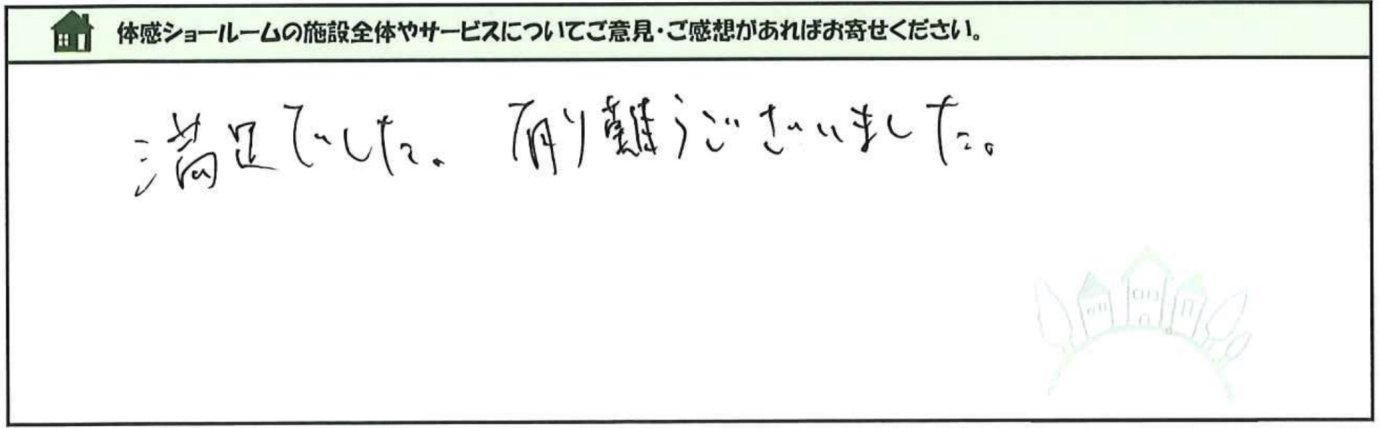 体感ショールームの施設全体やサービスについてご意見・ご感想があればお寄せください。
満足でした。有り難うございました。